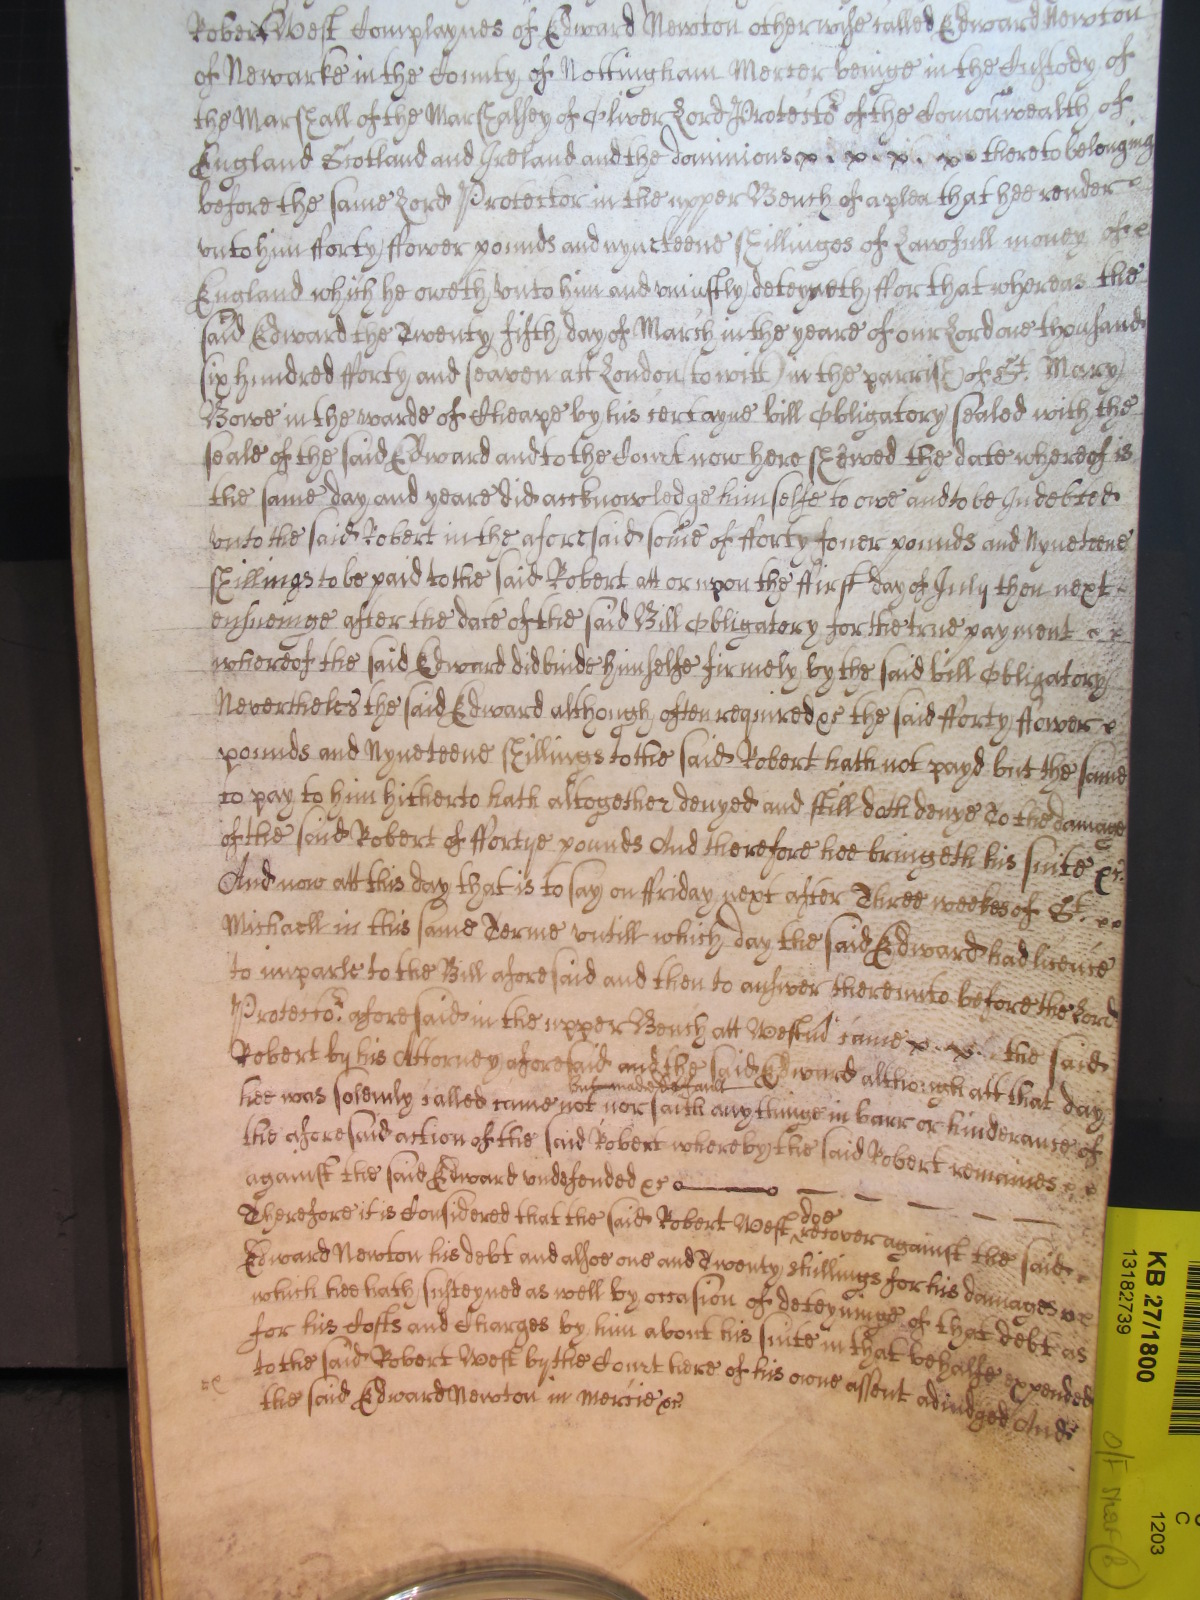 Robert West Complaynes of Edward Newton otherwise called Edward Newton
of Newarke in the County of Nottingham Mercer beinge in the Custody of
the Marshall of the Marshalsey of Oliver Lord Protector of the Comonwealth of
England Scotland and Ireland and the dominions x . x . x . x thereto belonging
before the same Lord Protector in the upper Bench of a plea that hee render
unto him fforty ffower pounds and nyneteene shillinges of Lawfull money of
England which he oweth unto him and uniustly deteyneth ffor that whereas the
said Edward the Twenty fifth day of March in the yeare of our Lord one thousand
six hundred fforty and seaven att London (to witt) in the parrish of St. Mary
Bowe in the warde of Cheape by his certayne bill Obligatory sealed with the
seale of the said Edward and to the Court now here shewed the date whereof is
the same day and yeare did accknowledge himselfe to owe and to be Indebted
unto the said Robert in the aforesaid some of fforty fower pounds and Nyneteene
shillings to be paid to the said Robert att or upon the ffirst day of July then next
ensueinge after the date of the said Bill Obligatory for the true payment
whereof the said Edward did binde himselfe firmely by the said bill Obligatory
Nevertheles the said Edward although often required &c the said fforty ffower
pounds and Nyneteene shillings to the said Robert hath not payd but the same
to pay to him hitherto hath altogether denyed and still doth denye To the damage
of the said Robert of ffortye pounds And therefore hee bringeth his suite &c.
And now att this day that is to say on ffriday next after Three weekes of St.
Michaell in this same Terme untill which day the said Edward had licence
to imparle to the Bill aforesaid and then to answer thereunto before the Lord
Protector aforesaid in the upper Bench att Westm' came x . x . the said
Robert by his Attorney aforesaid and the said Edward although att that day
but made default
hee was solemly called came not nor saith any thinge in barr or hinderance of
the aforesaid action of the said Robert whereby the said Robert remaines
against the said Edward undefended &c
Therefore it is Considered that the said Robert West doe recover against the said
Edward Newton his debt and alsoe one and Twenty shillings for his damages
which hee hath susteyned as well by occasion of deteyninge of that debt as
for his Costs and Charges by him about his suite in that behalfe expended
to the said Robert West by the Court here of his owne assent adiudged And
the said Edward Newton in Mercie &c.
KB 27/1800
13182739
C
1203